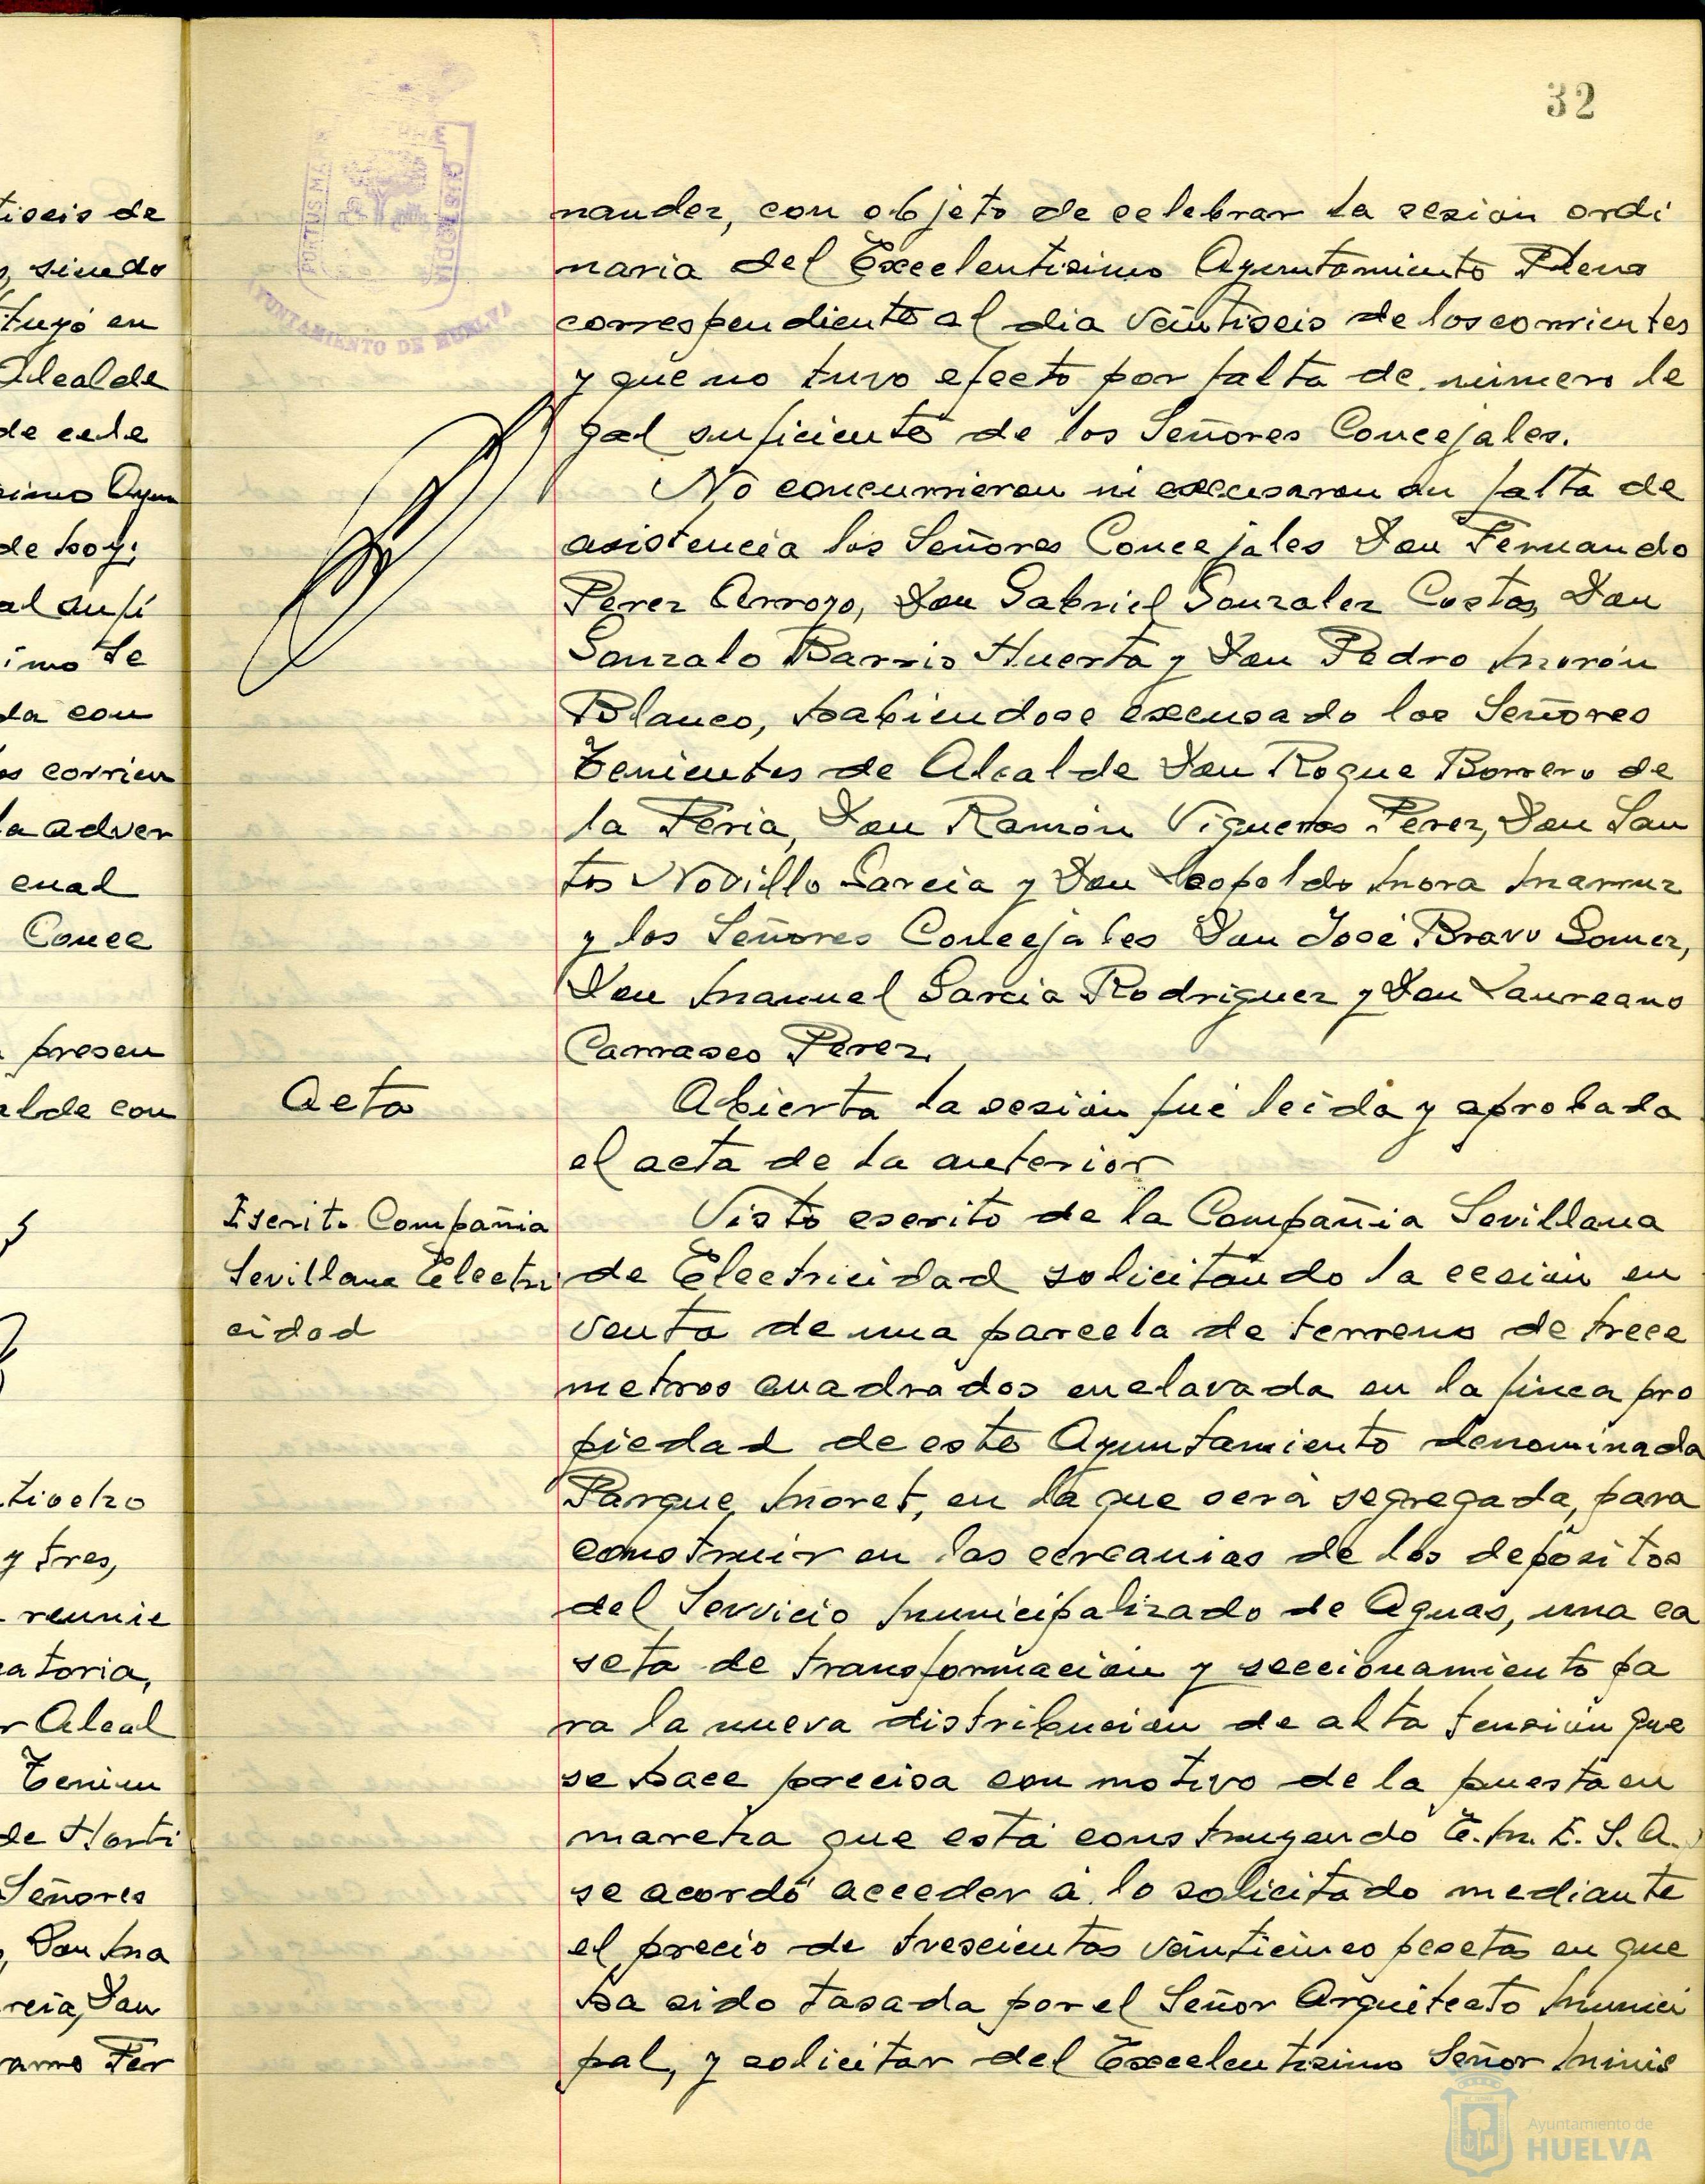 32
tiseis de
, siendo
tuyó en
Alcalde
de cele
simo Ayun
de hoy;
al sufi
imo Te
da con
os corrien
la adver
cual
Conce
presen
alde con
ticcho
y tres,
reunie
catoria,
r Alcal
Tenien
de Horti
Señores
, Don Ma
rcia, Don
arro Fer
PORTUS MA
AYUNTAMIENTO DE HUELVA
nandez, con objeto de celebrar la sesión ordi
naria del Excelentisimo Ayuntamiento Pleno
correspendiente al dia veintiseis de los corrientes
y que no tuvo efecto por falta de número le
gal suficiente de los Señores Concejales.
No concurrieron ni excusaron su falta de
asistencia los Señores Concejales Don Fernando
Perez Arroyo, Don Gabriel Gonzalez Costas, Don
Gonzalo Barris Huerta y Don Pedro Morón
Blanco, habiendose excusado los Señores
Tenientes de Alcalde Don Roque Borrero de
la Feria, Don Ramón Vigueras Perez, Don San
tos Novillo Garcia y Don Leopoldo Mora
y los Señores Concejales Don José Bravo Gomez,
Don Manuel Garcia Rodriguez y Don Laureano
Carrasco Perez.
Acta
Abierta la sesión fué leida y aprobada
el acta de la anterior
Escrito Compañia
Sevillana Electri
cidad
Visto escrito de la Compañia Sevillana
de Electricidad solicitando la cesión en
venta de una parcela de terreno de trece
metros cuadrados enclavada en la finca pro
piedad de este Ayuntamiento denominada
Parque Moret, en la que será segregada, para
construir en las cercanias de los depósitos
del Servicio Municipalizado de Aguas, una ca
seta de transformación y seccionamiento pa
ra la nueva distribución de alta tensión que
se hace precisa con motivo de la puesta en
marcha que está construyendo E.M.E.S.A.
se acordó acceder á lo solicitado mediante
el precio de trescientas veinticinco pesetas en que
ha sido tasada por el Señor Arquitecto Munici
pal, y solicitar del Excelentisimo Señor Minis
Ayuntamiento de
HUELVA